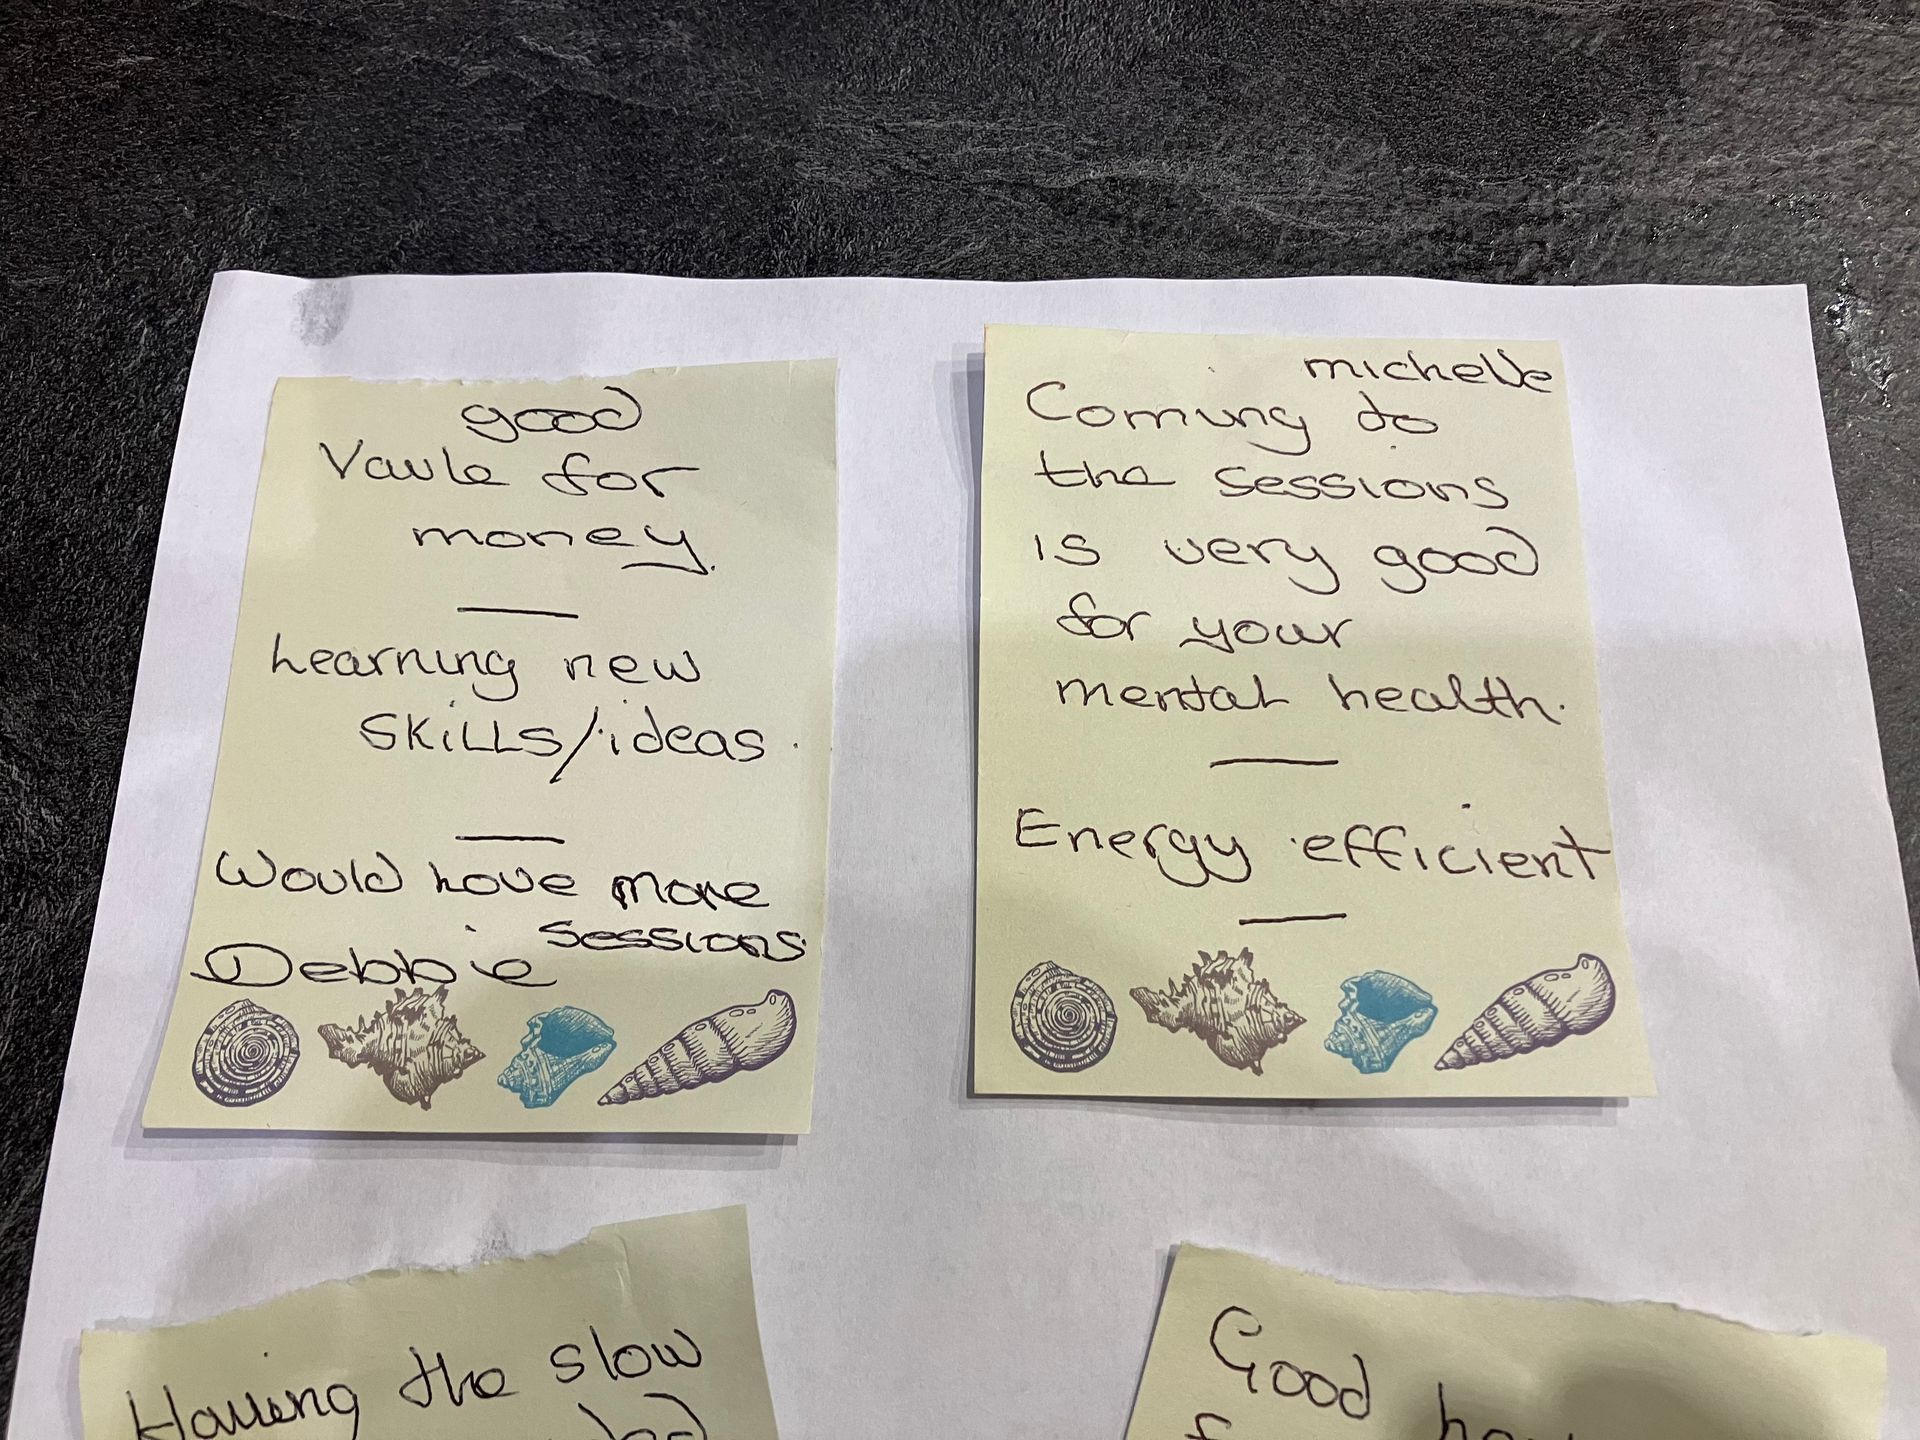 good
Vaule for
money.
Learning new
SKiLLS/ideas.
Would love more
sessions
Debbie
michelle
Coming to
the sessions
is very good
for your
mental health.
Energy efficient
Having the slow
Good